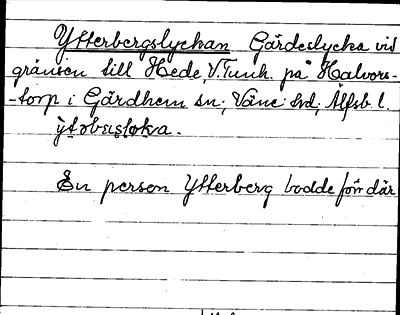 Ytterbergslyckan Gärdeslycka vid
gränsen till Hede, V. Tunh. på Halvors-
-torp i Gärdhem sn; Väne hd; Älfsb. l.
En person Ytterberg bodde förr där